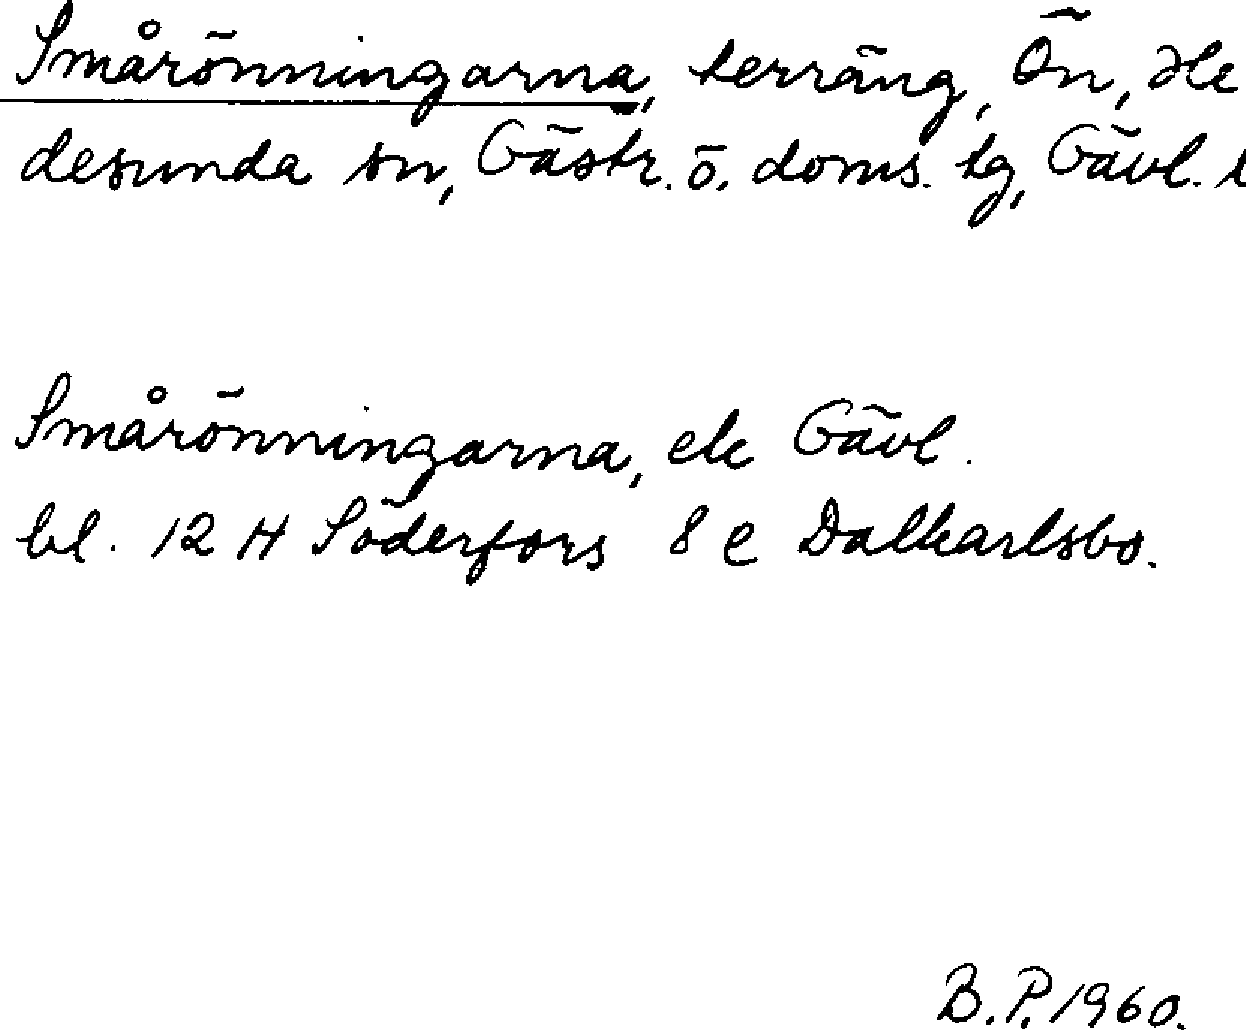 Smårönningarna, terräng, Ön, He
desunda sn, Gästr. ö. doms. tg, Gävl. l
Smårönningarna, ek Gävl.
bl. 12 H Söderfors 8 e Dalkarlsbo.
B.P. 1960.